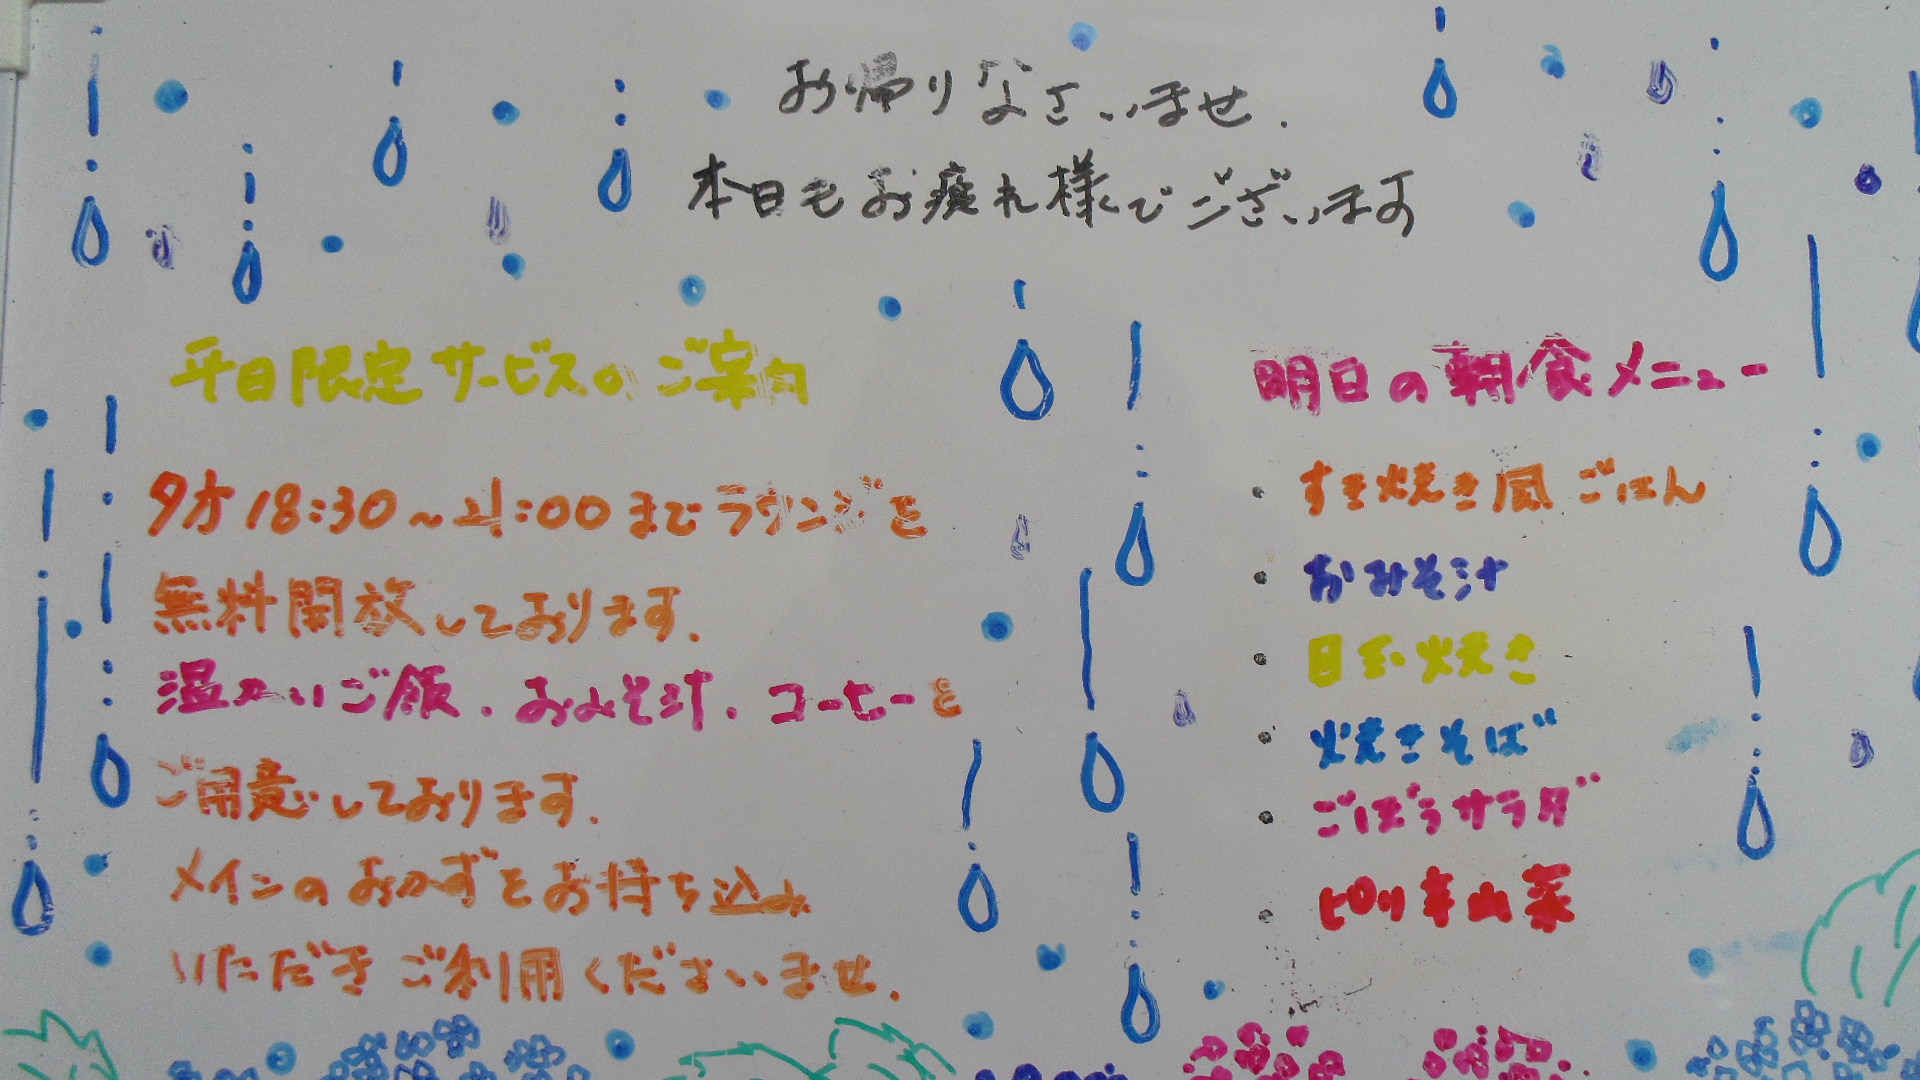 お帰りなさいませ.
本日もお疲れ様でございます
平日限定サービスのご案内
夕方18:30～21:00までラウンジを
無料開放しております.
温かいご飯.おみそ汁.コーヒーを
ご用意しております.
メインのおかずをお持ち込み
いただきご利用くださいませ.
明日の朝食メニュー
・すき焼き風ごはん
・おみそ汁
・目玉焼き
・焼きそば
・ごぼうサラダ
・ピリ辛山菜